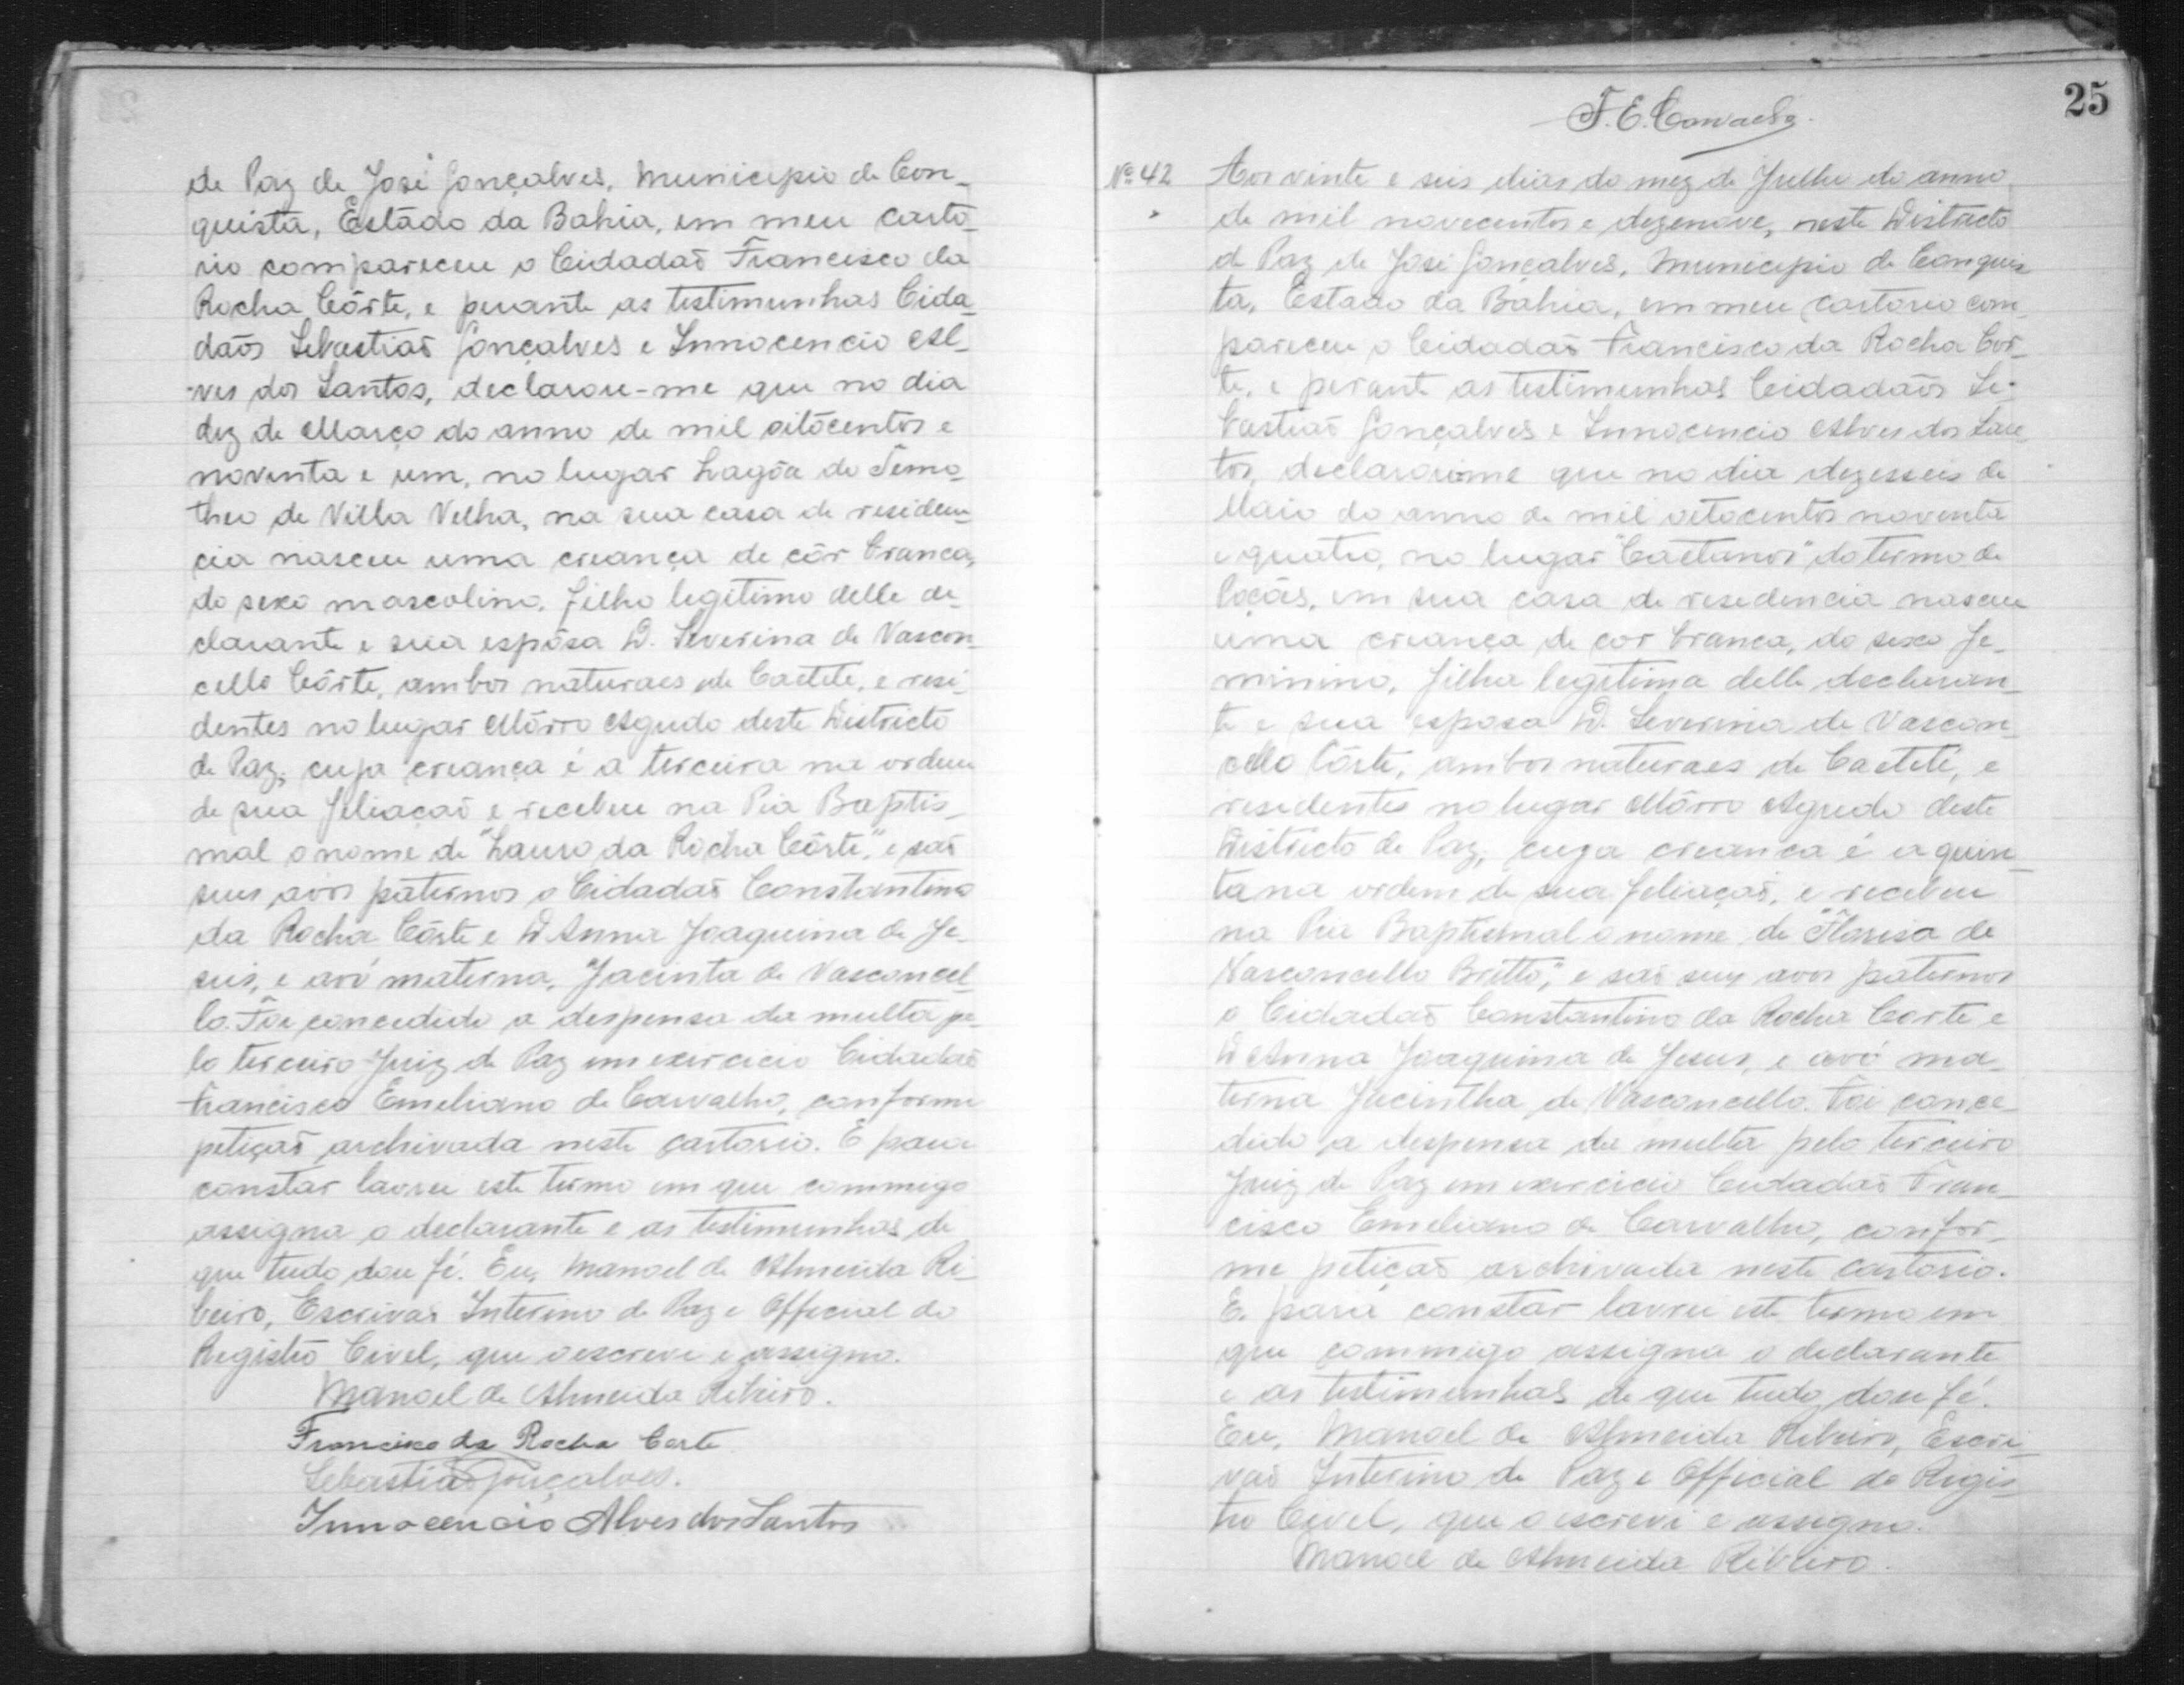 de Paz de José Gonçalves, Municipio de Con-
quista, Estado da Bahia, em meu carto-
rio compareceu o Cidadaõ Francisco da
Rocha Côrte, e perante as testimunhas Cida-
daõs Sebastiaõ Gonçalves e Innocencio Al-
ves dos Santos, declarou-me que no dia
dez de Março do anno de mil oitocentos e
noventa e um, no lugar Lagôa do Timo-
theo de Villa Velha, na sua casa de residen-
cia nasceu uma creança de côr branca,
do sexo mascolino, filho legitimo delle de-
clarante e sua espôsa D. Severina de Vascon-
cello Côrte, ambos naturaes de Caeteté, e resi-
dentes no lugar Môrro Agudo deste Districto
de Paz; cuja creança é a terceira na ordem
de sua filiaçaõ e recebeu na Pia Baptis-
mal o nome de "Lauro da Rocha Côrte," e saõ
seus avós paternos o Cidadaõ Constantino
da Rocha Côrte e D Anna Joaquina de Je-
sus, e avó materna, Jacinta de Vasconcel-
lo. Foi concedido a despensa da multa pe-
lo terceiro Juiz de Paz em exercicio Cidadaõ
Francisco Emeliano de Carvalho, conforme
petiçaõ archivada neste cartorio. E para
constar lavrei este termo em que commigo
assigna o declarante e as testimunhas de
que tudo dou fé. Eu, Manoel de Almeida Ri-
beiro, Escrivaõ Interino de Paz e Official do
Registro Civel, que o escrevi e assigno.
Manoel de Almeida Ribeiro.
Francisco da Rocha Corte
Sebastiaõ Gonçalves.
Innocencio Alves dos Santos
25
F. E. Carvalho.
Nº 42
Aos vinte e seis dias do mez de Julho do anno
de mil novecentos e dezenove, neste Districto
de Paz de José Gonçalves, Municipio de Conquis-
ta, Estado da Bahia, em meu cartorio com-
pareceu o Cidadaõ Francisco da Rocha Cor-
te, e perante as testimunhas Cidadaõs Se-
bastiaõ Gonçalves e Innocencio Alves dos San-
tos, declarou-me que no dia dezesseis de
Maio do anno de mil oitocentos noventa
e quatro, no lugar "Caetanos" do termo de
Poçoẽs, em sua casa de residencia nasceu
uma creança de cor branca, do sexo fe-
minino, filha legitima delle declaran-
te e sua esposa D. Severina de Vascon-
cello Côrte, ambos naturaes de Caeteté, e
residentes no lugar Môrro Agudo deste
Districto de Paz; cuja creanca é a quin-
ta na ordem de sua filiaçaõ, e recebeu
na Pia Baptismal o nome de "Florisa de
Vasconcello Britto," e saõ seus avos paternos
o Cidadaõ Constantino da Rocha Corte e
D Anna Joaquina de Jesus, e avó ma-
terna Jacintha de Vasconcello. Foi conce-
dido a despensa da multa pelo terceiro
Juiz de Paz em exercicio Cidadaõ Fran-
cisco Emeliano de Carvalho, confor-
me petiçaõ archivada neste cartorio.
E para constar lavrei este termo em
que commigo assigna o declarante
e as testimunhas de que tudo dou fé.
Eu, Manoel de Almeida Ribeiro, Escri-
vaõ Interino de Paz e Official do Regis-
tro Civel, que o escrevi e assigno.
Manoel de Almeida Ribeiro.